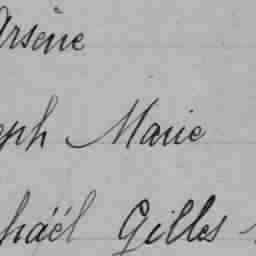 Arsène
eph Marie
haël Gilles